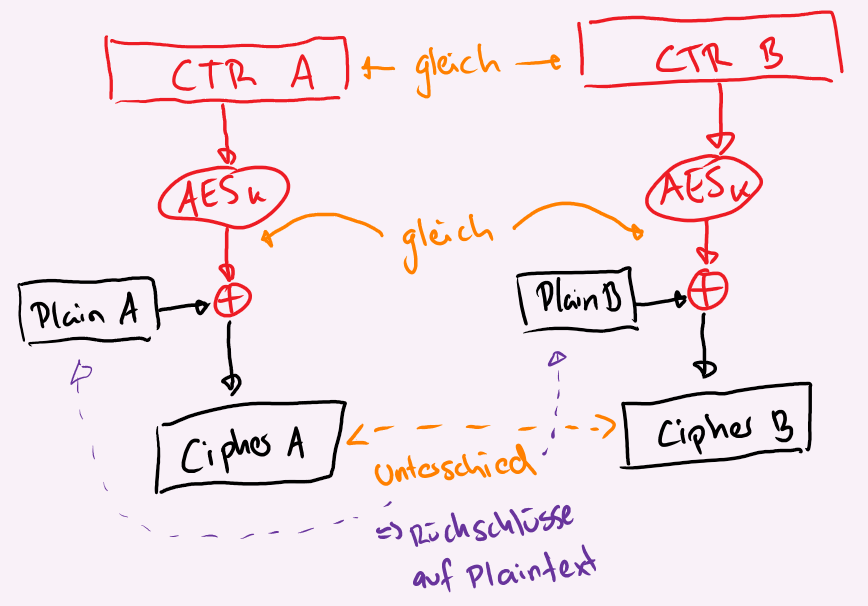 CTR A
gleich
CTR B
AES K
AES K
gleich
Plain A
Plain B
Cipher A
Cipher B
Unterschied
=> Rückschlüsse
auf Plaintext